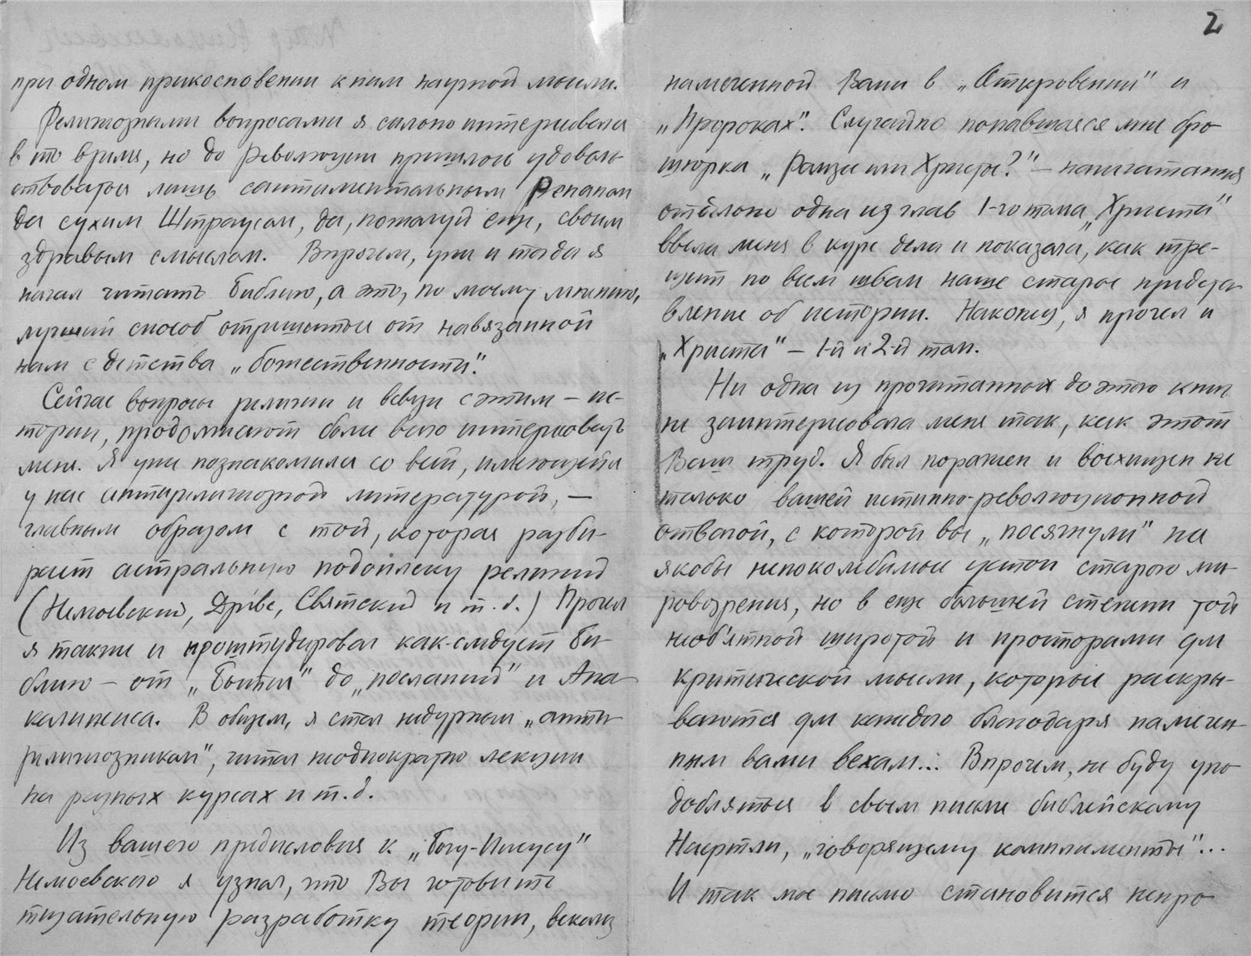 2
при одном прикосновении к ним научной мысли.
Религиозными вопросами я сильно интересовался
в то время, но до Революции пришлось удоволь-
ствоваться лишь сантиментальным Ренаном
да сухим Штраусом, да, пожалуй еще, своим
здравым смыслом. Впрочем, уже и тогда я
начал читать библию, а это, по моему мнению,
лучший способ отрешиться от навязанной
нам с детства „божественности".
Сейчас вопросы религии и в связи с этим – ис-
тории, продолжают более всего интересовать
меня. Я уже познакомился со всей, имеющейся
у нас антирелигиозной литературой, –
главным образом с той, которая разби-
рает астральную подоплеку религий
(Немоевский, Древс, Святский и т. д.) Прочел
я также и проштудировал как-следует би-
блию – от „Бытия" до „посланий" и Апо-
калипсиса. В общем, я стал недурным „анти-
религиозником", читал неоднократно лекции
на разных курсах и т. д.
Из вашего предисловия к „Богу-Иисусу"
Немоевского я узнал, что Вы готовите
тщательную разработку теории, вскользь
намеченной Вами в „Откровении" и
„Пророках". Случайно попавшаяся мне бро-
шюрка „Рамзес или Христос?" – напечатанная
отдельно одна из глав 1-го тома „Христа"
ввела меня в курс дела и показала, как тре-
щит по всем швам наше старое представ-
вление об истории. Наконец, я прочел и
„Христа" – 1-й и 2-й том.
Ни одна из прочитанных до этого книг
не заинтересовала меня так, как этот
Ваш труд. Я был поражен и восхищен не
только вашей истинно-революционной
отвагой, с которой вы „посягнули" на
якобы непоколебимые устои старого ми-
ровоззрения, но в еще большей степени той
необ'ятной широтой и просторами для
критической мысли, которые раскры-
ваются для каждого благодаря намечен-
ным вами вехам... Впрочем, не буду упо-
добляться в своем письме библейскому
„говорящему комплименты"...
И так мое письмо становится непро-